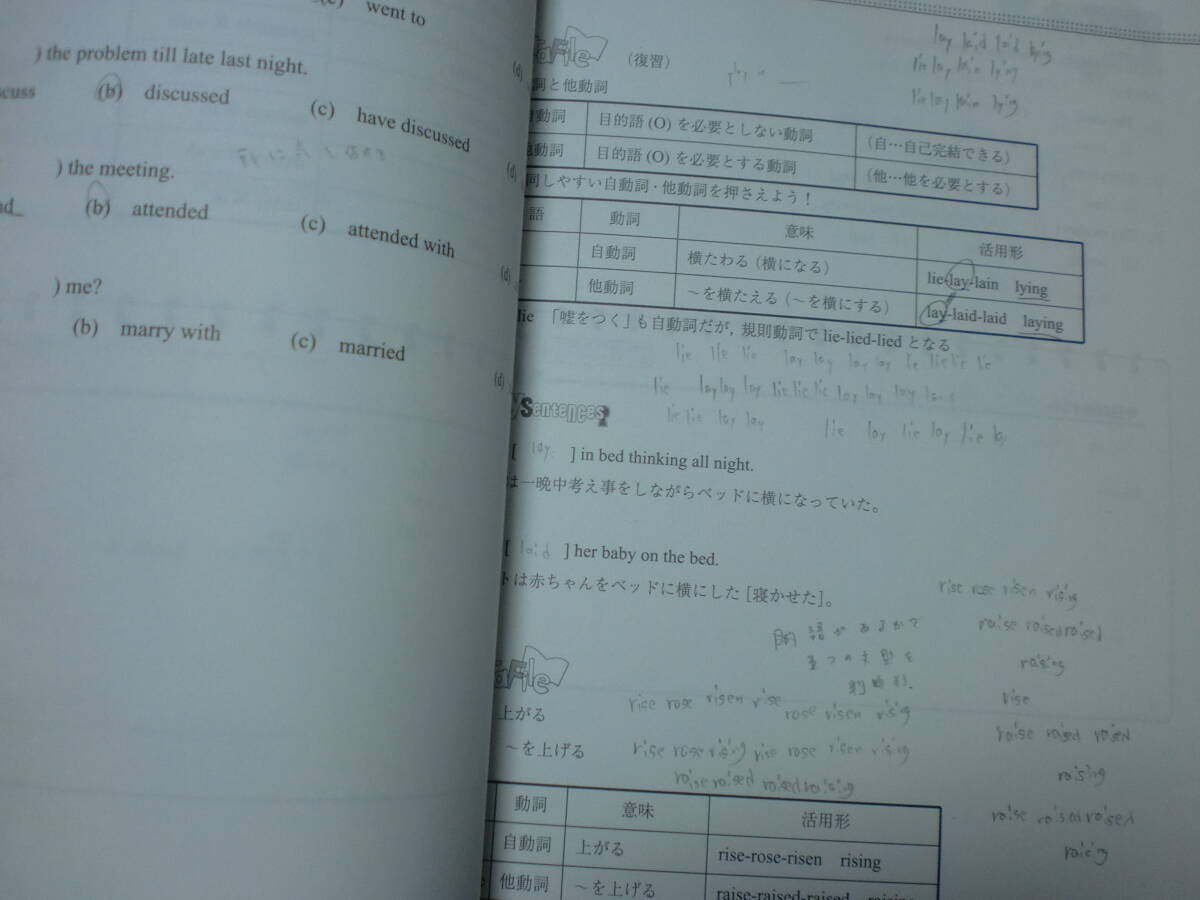 went to
) the problem till late last night.
(b) discussed
(c) have discussed
) the meeting.
(b) attended
(c) attended with
) me?
(b) marry with
(c) married
(d)
(d)
(d)
(d)
File (復習)
play
lay laid laid
lie lay lain lying
lie lay lain lying
詞と他動詞
自動詞 目的語 (O) を必要としない動詞 (自…自己完結できる)
他動詞 目的語 (O) を必要とする動詞 (他…他を必要とする)
同しやすい自動詞・他動詞を押さえよう!
語 動詞 意味 活用形
自動詞 横たわる (横になる) lie-lay-lain lying
他動詞 ~を横たえる (~を横にする) lay-laid-laid laying
lie 「嘘をつく」も自動詞だが, 規則動詞で lie-lied-lied となる
lie lie lie lay lay lay lay lie lie lie lie
lie lay lay lay lie lie lie lay lay lay
lie lie lay lay lie lay lie lay lie
Sentences
[ lay ] in bed thinking all night.
は一晩中考え事をしながらベッドに横になっていた。
[ laid ] her baby on the bed.
トは赤ちゃんをベッドに横にした [寝かせた]。
rise rose risen rising
raise raised raised
raising
rise
raise raised raised
raising
raise raised raised
File
上がる
~を上げる
rise rose risen rise
rose risen rising
rise rose rising rise rose risen rising
raise raised raised raising
動詞 意味 活用形
自動詞 上がる rise-rose-risen rising
他動詞 ~を上げる raise-raised-raised raising